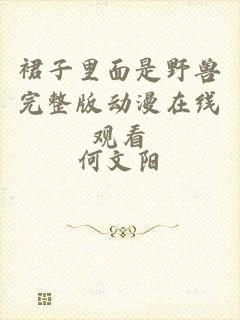 裙子里面是野兽
完整版动漫在线
观看
何文阳